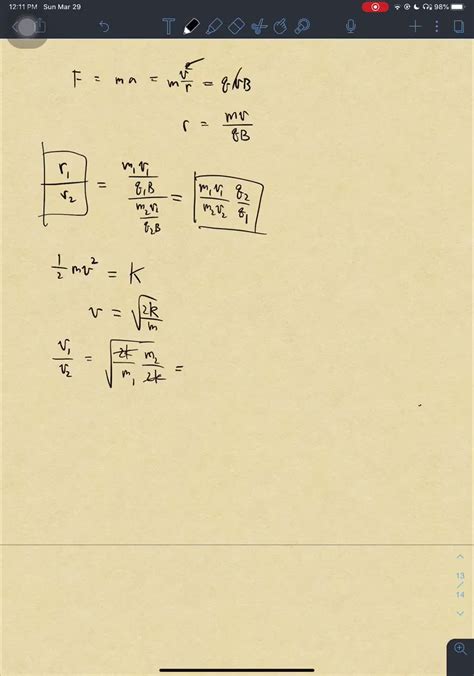 12:11 PM Sun Mar 29
98%
F = ma = m v²/r = qvB
r = mv/qB
r₁/r₂ = (m₁v₁/q₁B)/(m₂v₁/q₂B) = m₁v₁/m₂v₂ q₂/q₁
1/2 mv² = K
v = √(2k/m)
v₁/v₂ = √(2k/m₁ m₂/2k) =
13
/
14